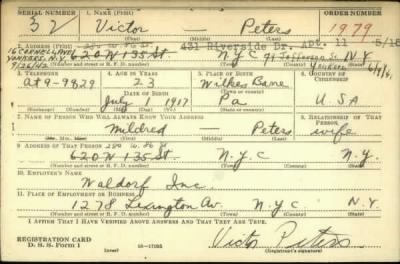 SERIAL NUMBER 1. NAME (Print) ORDER NUMBER
32 Victor Peters 1979
(First) (Middle) (Last)
2. ADDRESS (Print) 431 Riverside Dr. Apt. 11
YONKERS, N.Y. 620 W 135 St. N.Y.C 94 Jefferson St. N.Y.
9/26/43 Yonkers
3. TELEPHONE 4. AGE IN YEARS 5. PLACE OF BIRTH 6. COUNTRY OF CITIZENSHIP
At 9-9829 23 Wilkes Barre
DATE OF BIRTH
July 1917 Pa U.S.A
7. NAME OF PERSON WHO WILL ALWAYS KNOW YOUR ADDRESS 8. RELATIONSHIP OF THAT PERSON
Mildred — Peters wife
(Mr., Mrs., Miss) (First) (Middle) (Last)
9. ADDRESS OF THAT PERSON
620 W 135 St. N.Y.C N.Y.
(Number and street or R. F. D. number) (Town) (County) (State)
10. EMPLOYER'S NAME
Waldorf Inc.
11. PLACE OF EMPLOYMENT OR BUSINESS
1278 Lexington Av. N.Y.C N.Y
(Number and street or R. F. D. number) (Town) (County) (State)
I AFFIRM THAT I HAVE VERIFIED ABOVE ANSWERS AND THAT THEY ARE TRUE.
REGISTRATION CARD
D. S. S. Form 1 (over) 16—17105 Victor Peters
(Registrant's signature)